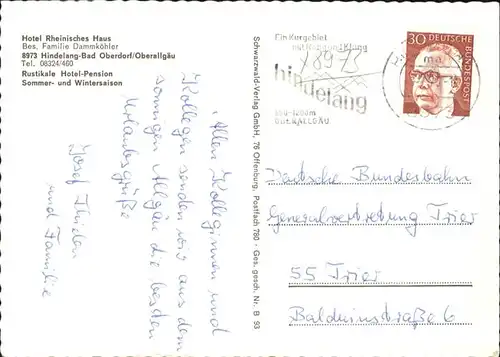 Hotel Rheinisches Haus
Bes. Familie Dammköhler
8973 Hindelang-Bad Oberdorf/Oberallgäu
Tel. 08324/460
Rustikale Hotel-Pension
Sommer- und Wintersaison
Allen Kolleginnen und
Kollegen senden wir aus dem
sonnigen Allgäu die besten
Urlaubsgrüße
Josef Thielen
und Familie
Schwarzwald-Verlag GmbH, 76 Offenburg, Postfach 780 · Ges. gesch. Nr. B 93
Ein Kurgebiet
mit und Klang
hindelang
OBERALLGÄU
30 DEUTSCHE BUNDESPOST
Deutsche Bundesbahn
Generalvertretung Trier
55 Trier
Balduinstraße 6